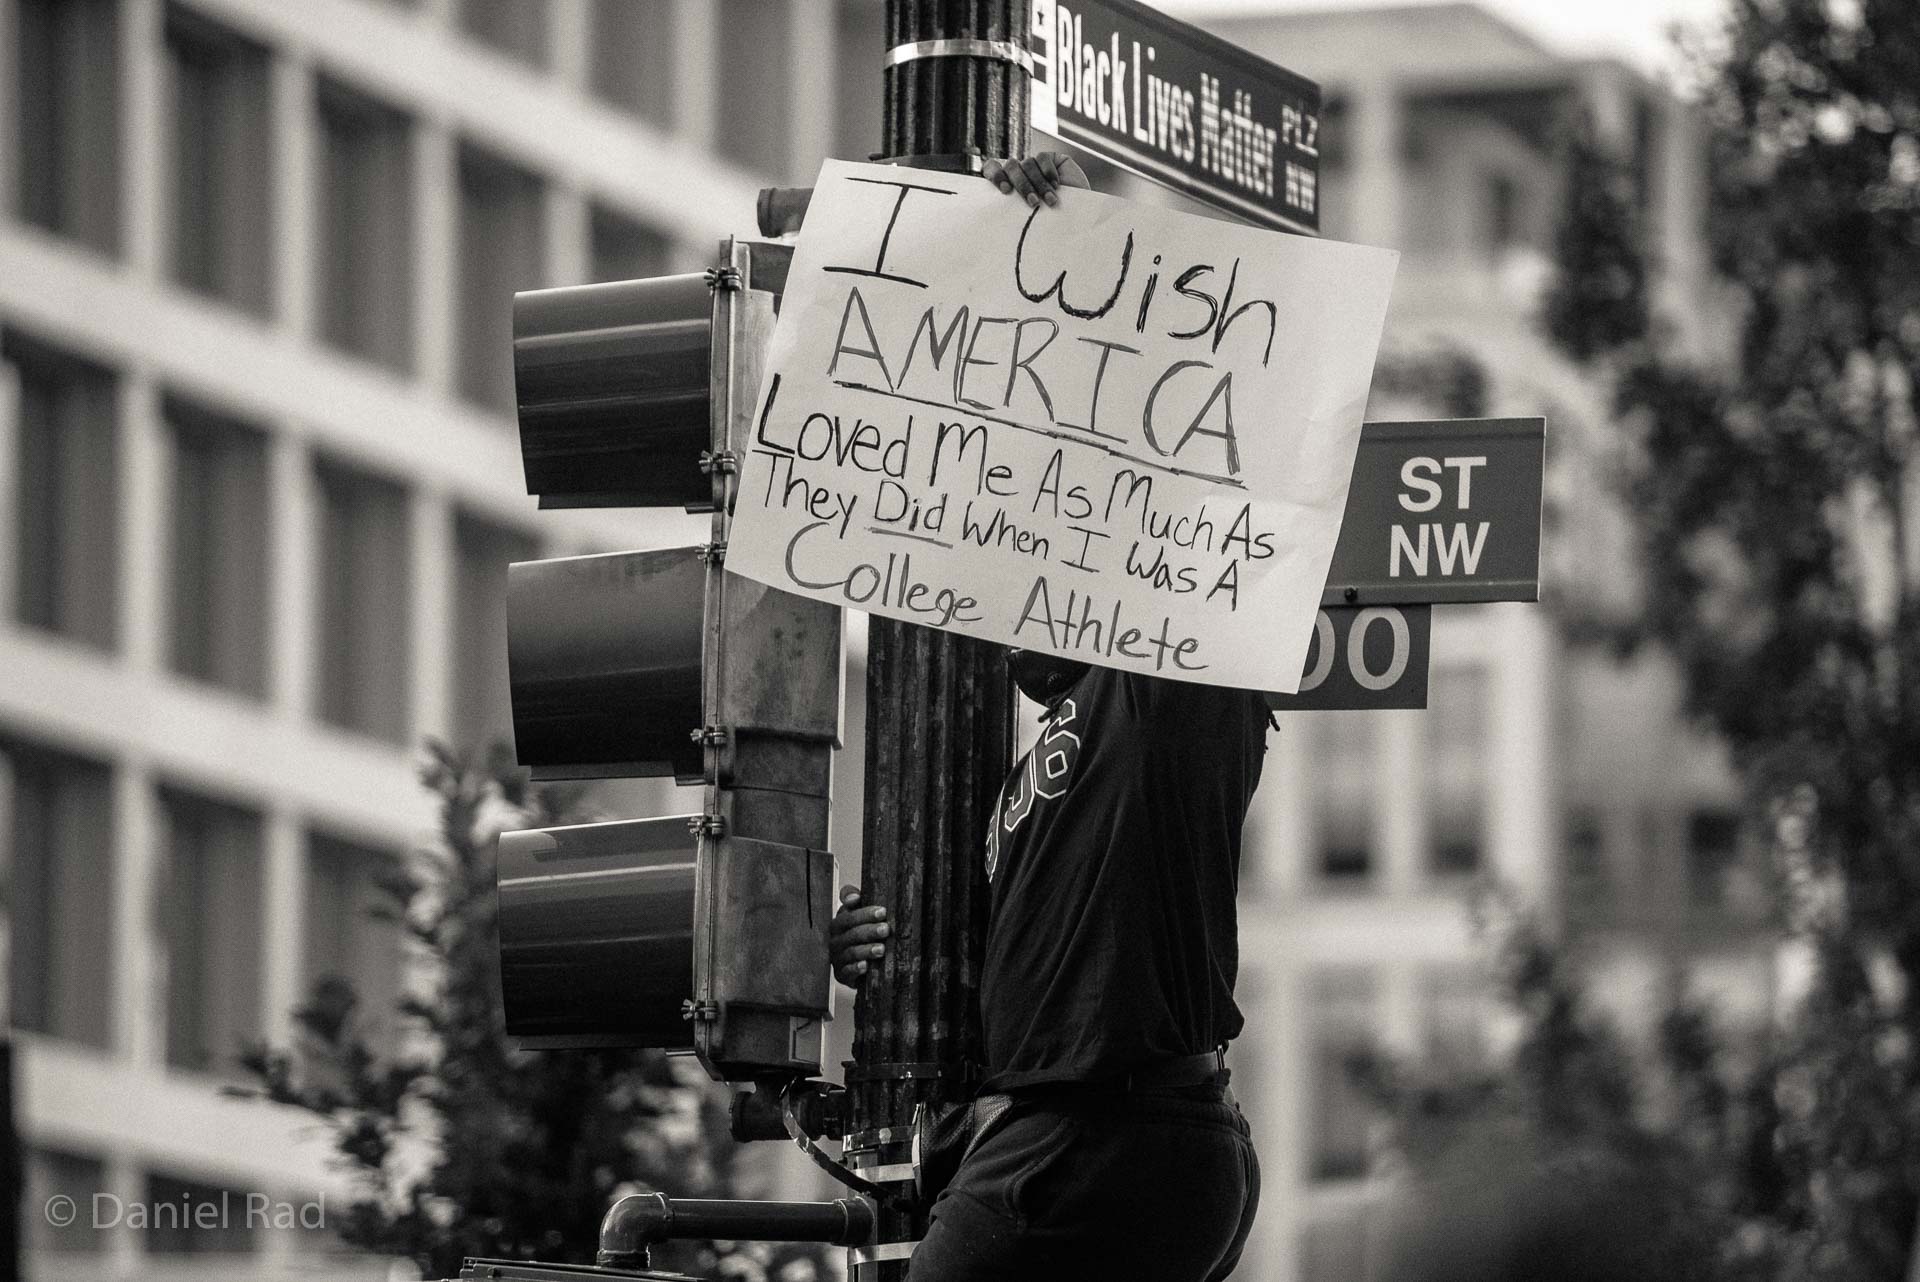 Black Lives Matter PLZ NW
I Wish
AMERICA
Loved Me As Much As
They Did When I Was A
College Athlete
ST
NW
00
06
© Daniel Rad